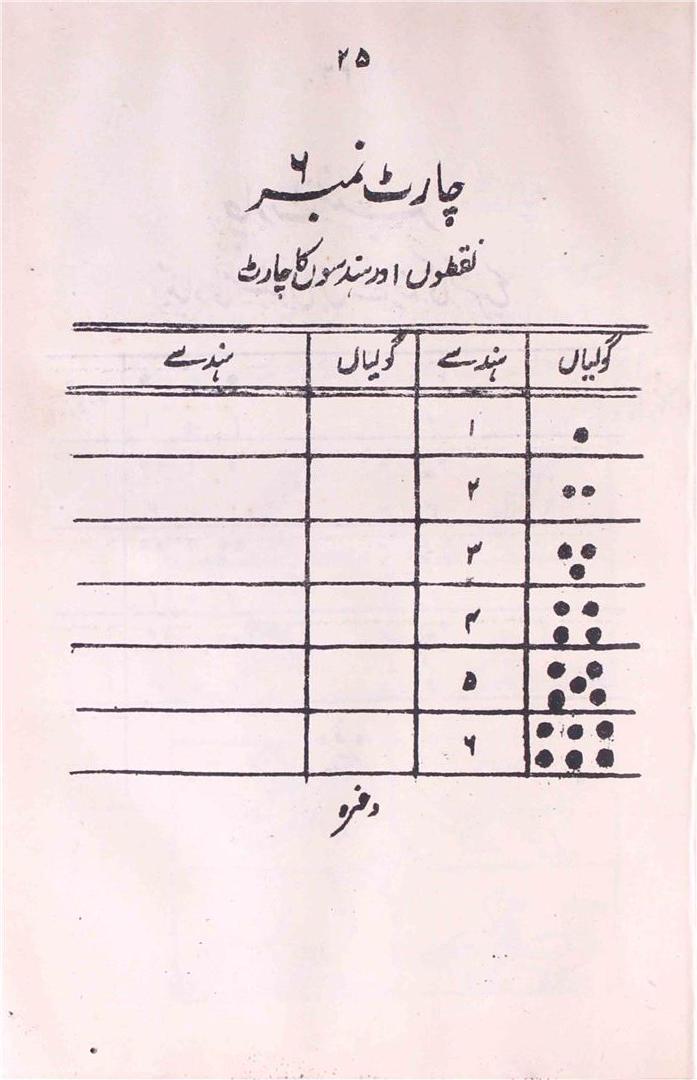 ۲۵
چارٹ نمبر ۶
نقطوں اور ہندسوں کا چارٹ
گولیاں ہندسے گولیاں ہندسے
۱
۲
۳
۴
۵
۶
وغیرہ